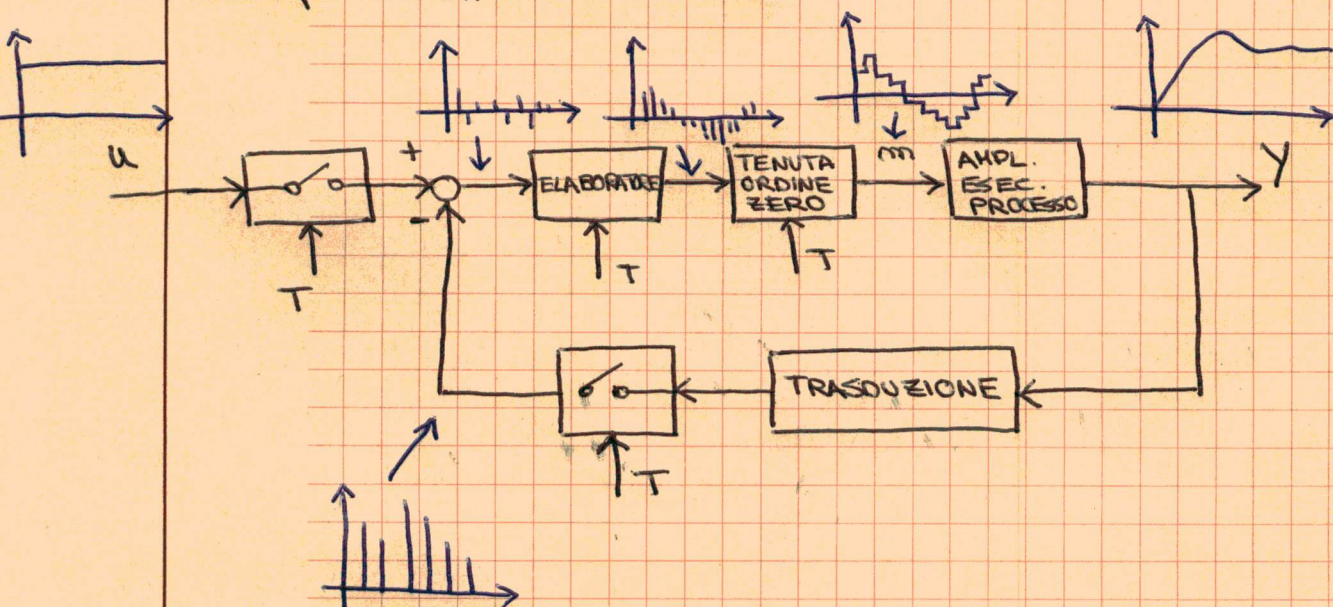 u
T
+
-
ELABORATORE
T
TENUTA
ORDINE
ZERO
T
m
AMPL.
ESEC.
PROCESSO
Y
TRASDUZIONE
T